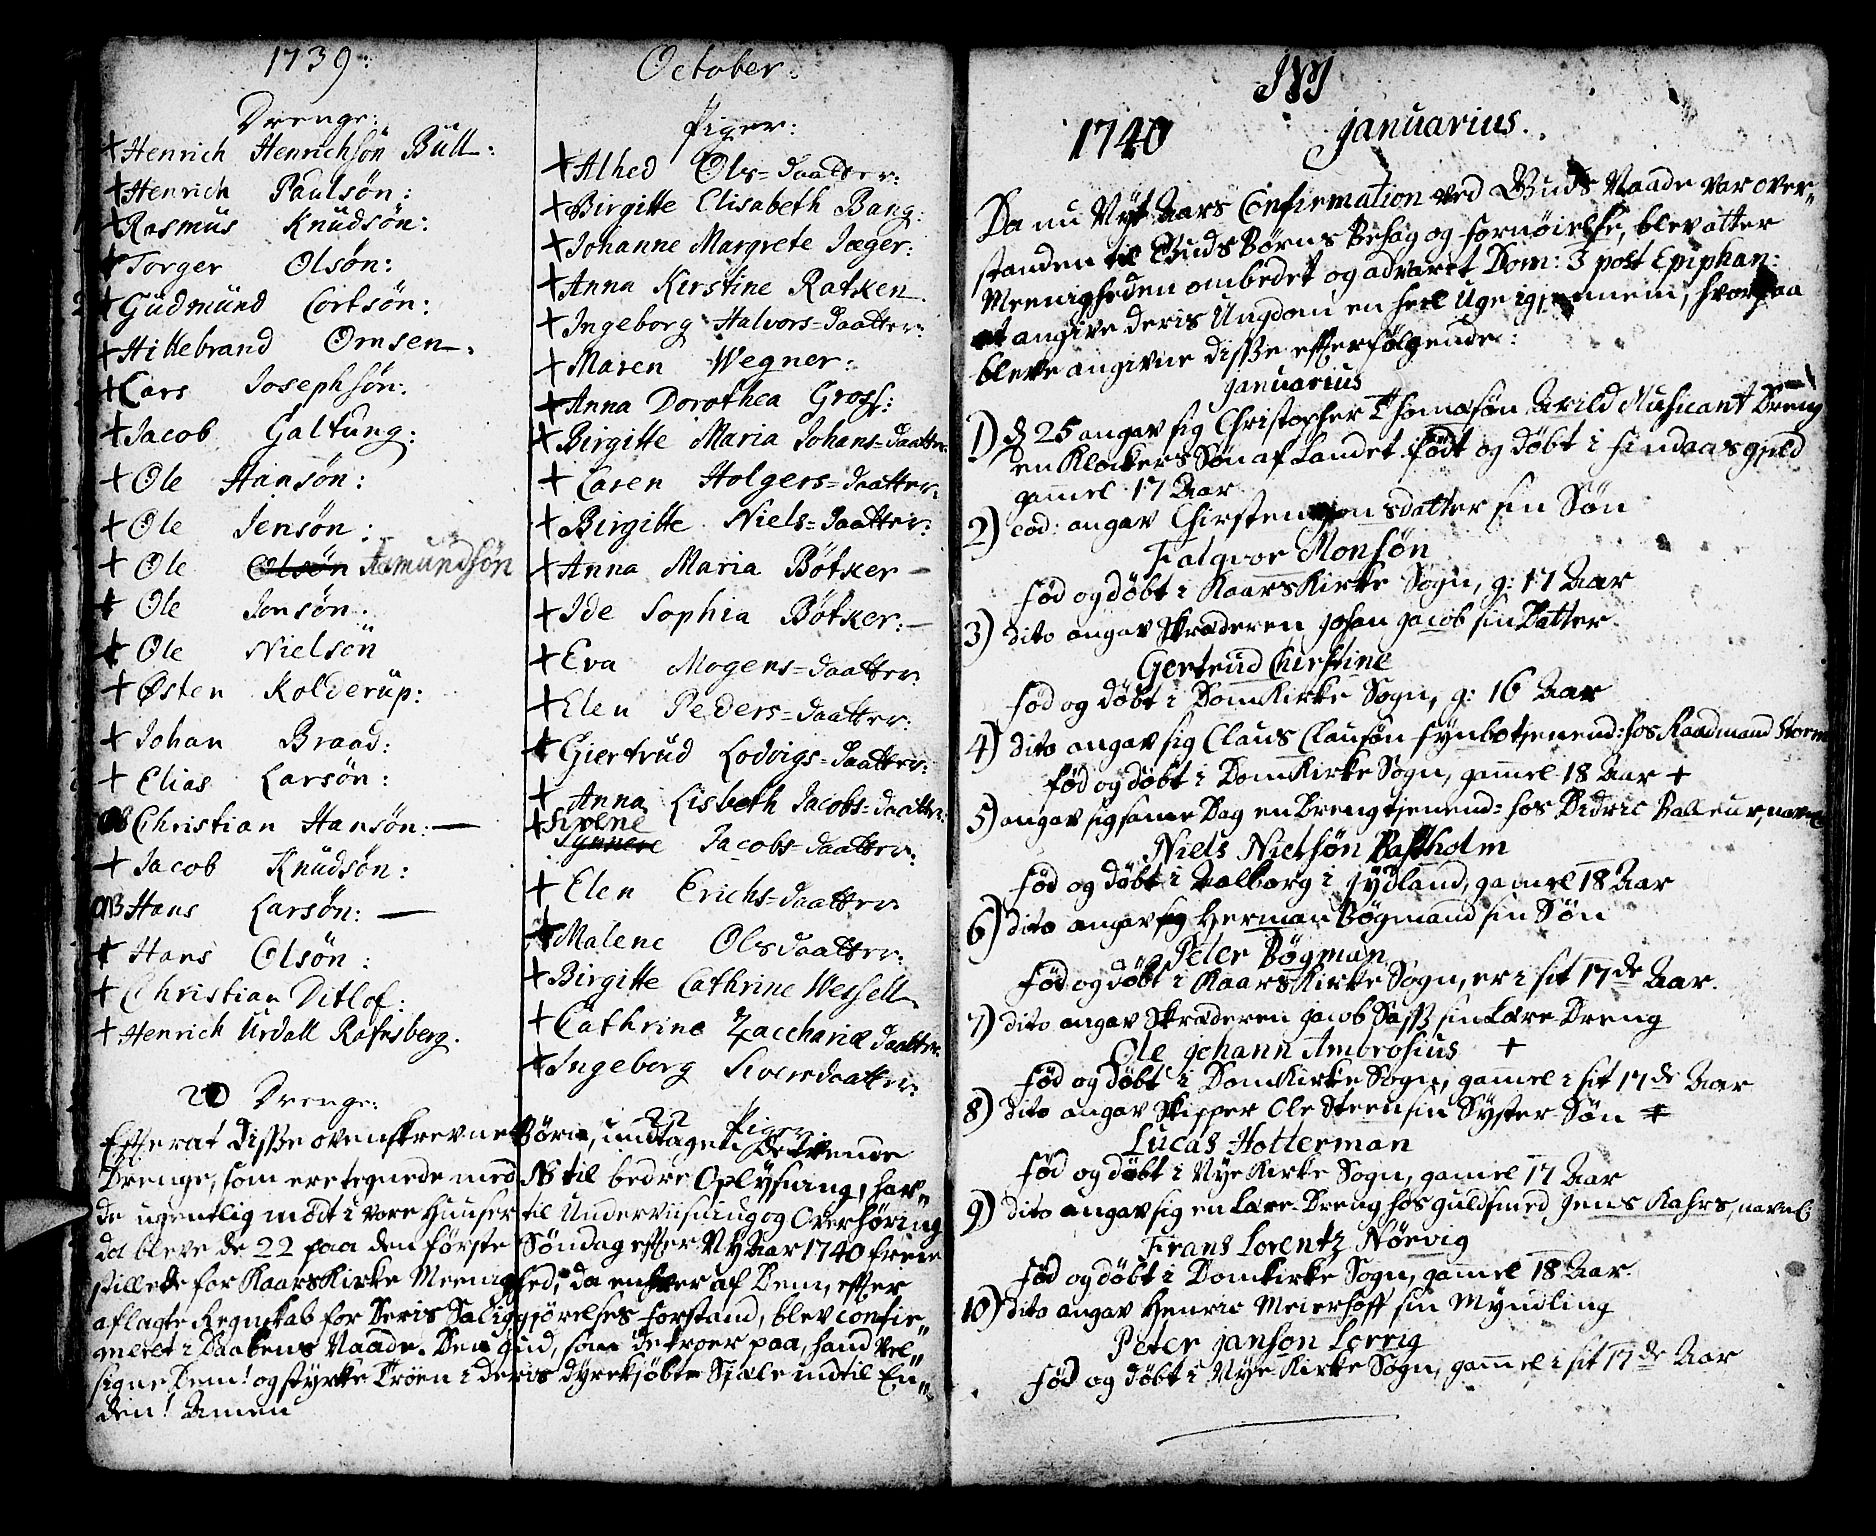 1739:
Drenge:
+ Henrich Henrichsön Büll:
+ Henrich Paulsøn:
+ Rasmus Knudsön:
+ Torger Olsøn:
+ Gudmünd Cortsön:
+ Hillebrand Ornsen.
+ Lars Josephsøn:
+ Jacob Galtung:
+ Ole Hansøn:
+ Ole Jensøn:
+ Ole Olsön Asmundsön
+ Ole Jonsøn:
+ Ole Nielsön
+ Østen Kolderup:
+ Johan Braad:
+ Elias Larsøn:
NB Christian Hansøn: —
+ Jacob Knudsøn:
NB Hans Larsøn: —
+ Hans Olsön:
+ Christian Ditlof:
+ Henrich Urdall Rafnsberg.
Drenge:
October.
Piger:
+ Alhed Ols=daatter:
+ Birgitte Elisabeth Bang:
+ Johanne Margrete Jæger:
+ Anna Kirstine Ratken
+ Ingeborg Halvors=daatter:
+ Maren Wegner:
+ Anna Dorothea Gross:
+ Birgitte Maria Johans=daatter
+ Caren Holgers=daatter:
+ Birgitte Niels=daatter:
+ Anna Maria Bötker —
+ Ide Sophia Bötker: —
+ Eva Mogens=daatter:
+ Elen Peders=daatter:
+ Giertrud Lodvigs=daatter:
+ Anna Lisbeth Jacobs=daatter:
+ Sirene
Synnere Jacobs=daatter:
+ Elen Erichs=daatter
+ Malene Olsdaatter:
+ Birgitte Cathrine Wessell
+ Cathrine Zacchariæ daatter.
+ Ingeborg Siversdaatter:
22 Piger
Efterat disse ovenskrevne Börn, undtagen de tvende
Drenge, som ere tegnede med NB til bedre Oplysning, hav„
de ugentlig mödt i vore Huuser til Underviisning og Overhöring
da bleve de 22 paa den förste Søndag efter Ny Aar 1740 frem
stillede for Kaars Kirke Meenighed, da enhver af Dem, efter
aflagte Regnskab for Deris Saliggjörelses Forstand, blev confir„
meret i Daabens Naade. Den Gud, som de troer paa, hand vel„
signe Dem! og styrke Troen i deris dyrekjöbte Siæle indtil En„
den! Amen
1740 Januarius.
Da nu Nyt Aars Confirmation ved Guds Naade var over„
standen til Guds Børns Behag og Fornöielse, blev atter
Meenigheden ombedet og advaret Dom: 3 post Epiphan:
at angive deris Ungdom en heel Uge igjennem, hvorpaa
bleve angivne disse efterfølgende:
Januarius
1) d 25 angav sig Christopher Thomæsøn Arild Musicant Dreng
en Klockers Søn af Landet. Födt og döbt i Hindaas gjeld
gammel 17 Aar
2) eod: angav Chirsten Monsdatter sin Søn
Falqvor Monsøn
Född og döbt i Kaars Kirke Sogn, g: 17 Aar
3) dito angav Skræderen Johan Jacob sin Datter
Gertrud Chirstine
född og döbt i DomKirke Sogn, g: 16 Aar
4) dito angav sig Claus Clausøn Fynbo tjenend: hos Raadmand Storm
född og döbt i DomKirke Sogn, gammel 18 Aar +
5) angav sig samme Dag en Dreng tjenend: hos Didric Balleur, navnl
Niels Nielsøn Bastholm
född og döbt i Aalborg i Jydland, gammel 18 Aar
6) dito angav sig Herman Bögmand sin Søn
Peter Bögman
född og döbt i KaarsKirke Sogn, er i sit 17de Aar.
7) dito angav Skræderen Jacob Sass sin Lære Dreng
Ole Johann Ambrosius +
född og döbt i DomKirke Sogn, gammel i sit 17de Aar
8) dito angav Skipper Ole Steen sin Syster Søn +
Lucas Hotterman
född og döbt i Nye Kirke Sogn, gammel 17 Aar
9) dito angav sig en Lære-Dreng hos Guldsmed Jens Kahrs, navnl
Frans Lorentz Nörvig
född og döbt i Domkirke Sogn, gammel 18 Aar.
10) dito angav Henric Meierhoff sin Myndling
Peter Janson Lorrig
född og döbt i Nye Kirke Sogn, gammel i sit 17de Aar